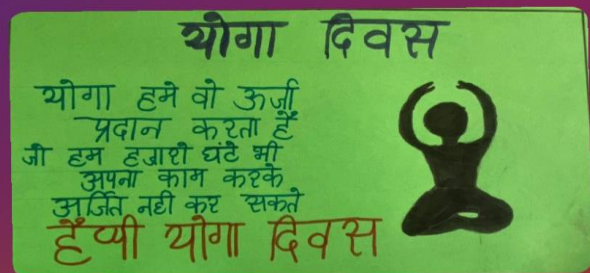 योगा दिवस
योगा हमे वो ऊर्जा
प्रदान करता हैं
जो हम हजारो घंटे भी
अपना काम करके
अर्जित नही कर सकते
हैप्पी योगा दिवस